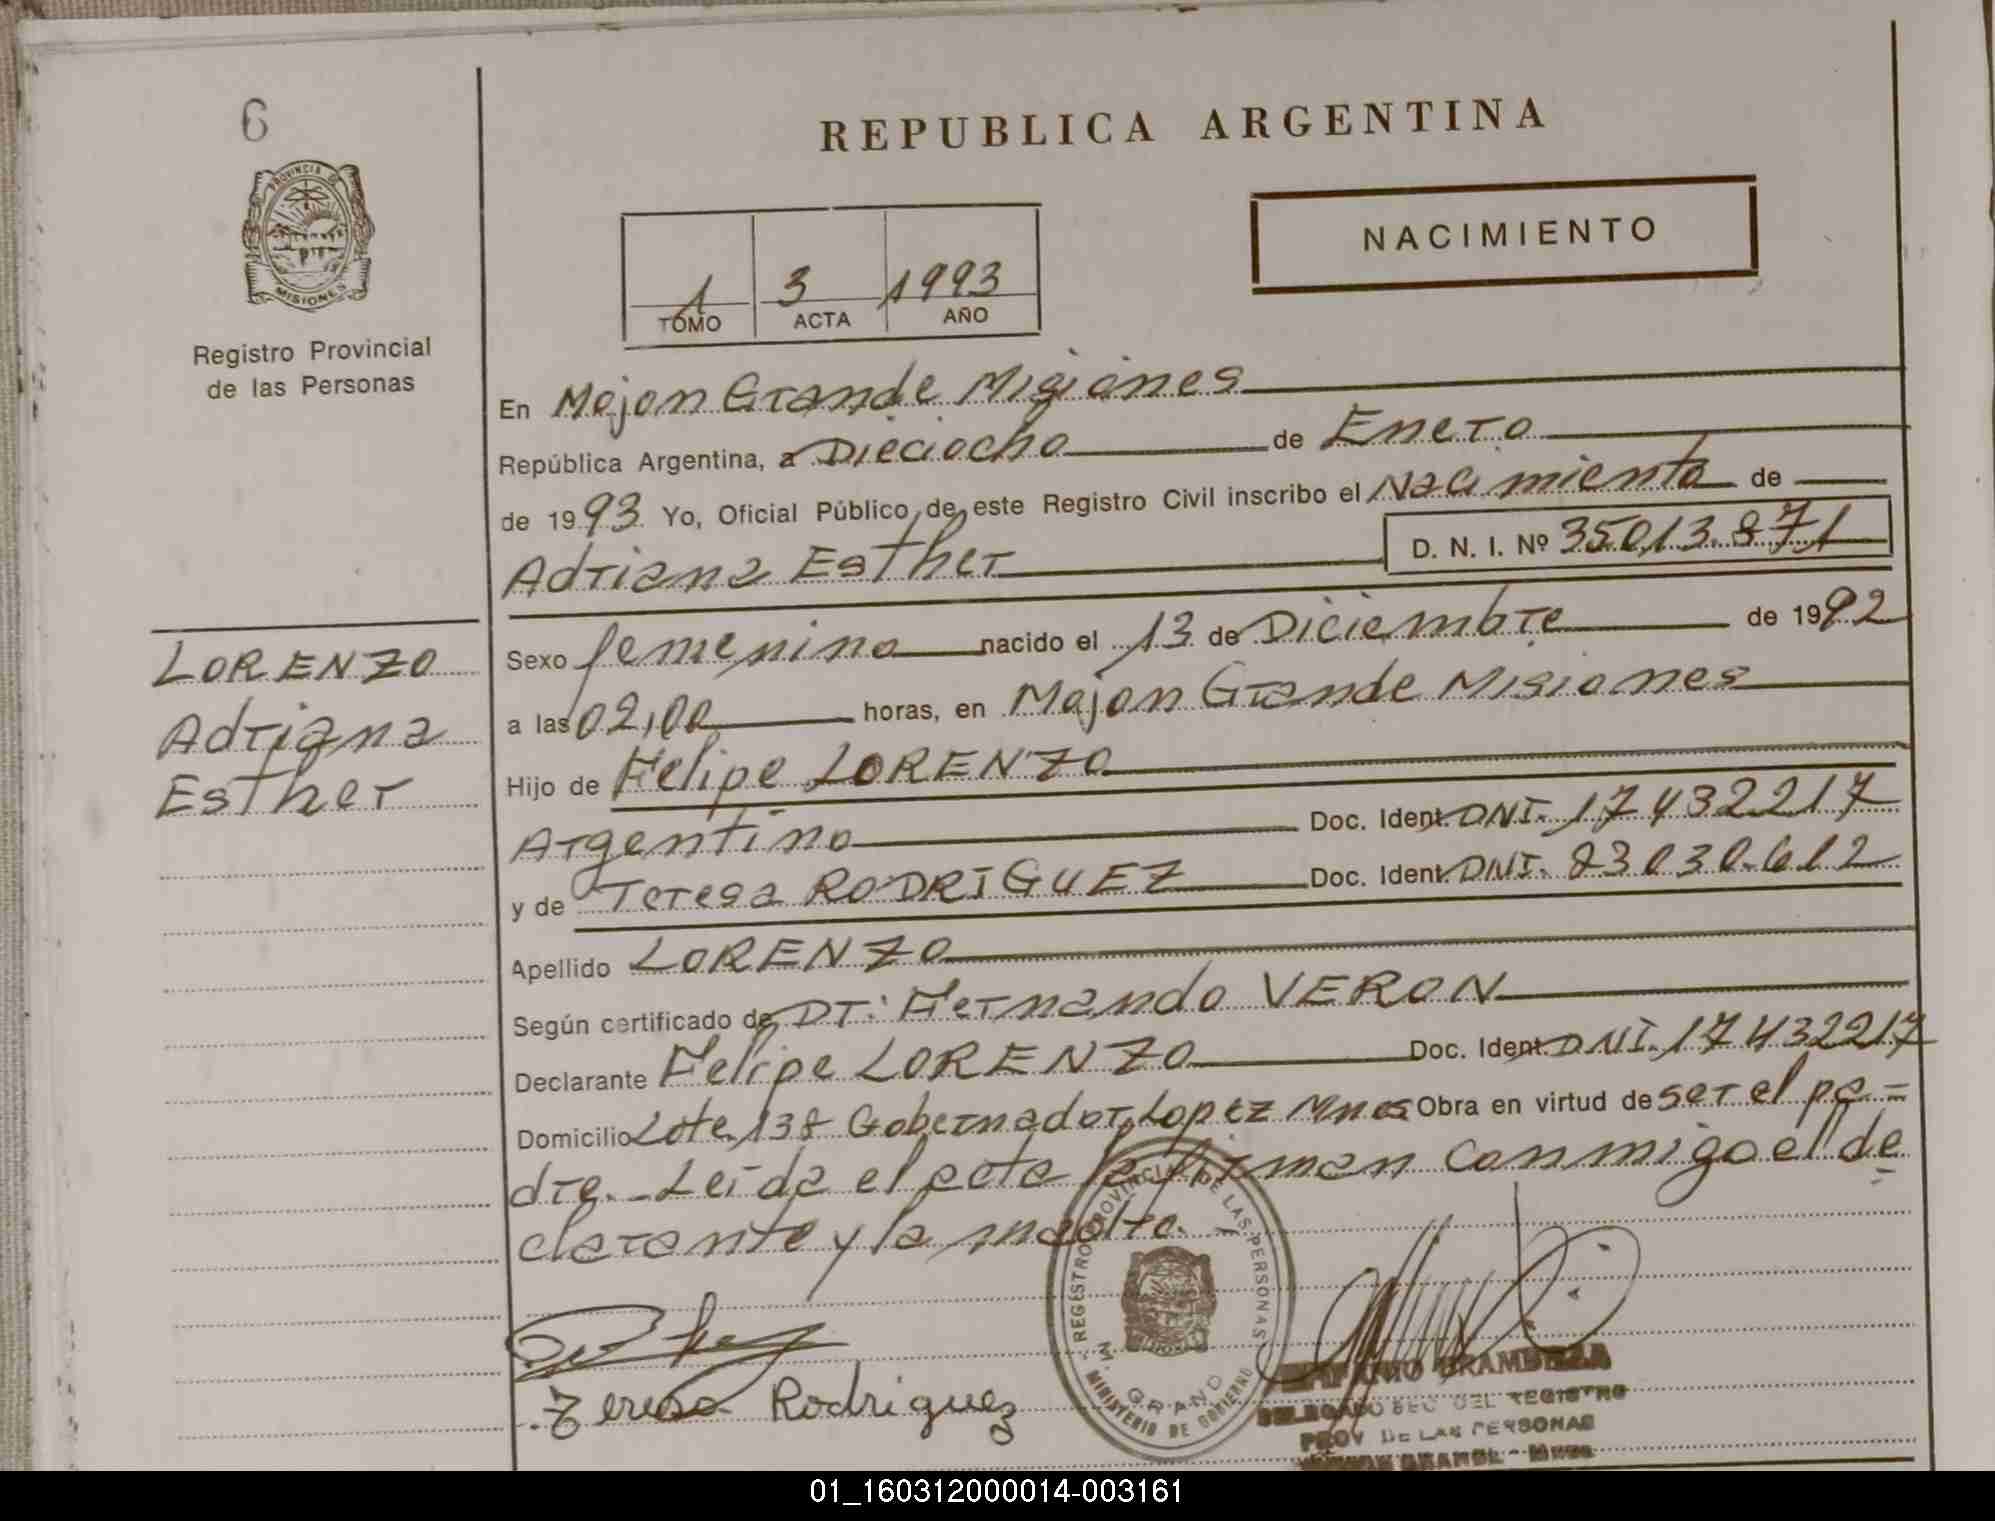 6
REPUBLICA ARGENTINA
PROVINCIA DE
MISIONES
NACIMIENTO
1 3 1993
TOMO ACTA AÑO
Registro Provincial
de las Personas
En Mojon Grande Misiones
República Argentina, a Dieciocho de Enero
de 1993 Yo, Oficial Público de este Registro Civil inscribo el Nacimiento de
Adriana Esther D. N. I. Nº 35013.871
LORENZO
Adriana
Esther
Sexo femenino nacido el 13 de Diciembre de 1992
a las 02,00 horas, en Mojon Grande Misiones
Hijo de Felipe LORENZO
Argentino Doc. Ident. DNI. 17432217
y de Teresa RODRIGUEZ Doc. Ident. DNI. 93030.612
Apellido LORENZO
Según certificado de Dr: Fernando VERON
Declarante Felipe LORENZO Doc. Ident. DNI. 17432217
Domicilio Lote 138 Gobernador Lopez Mnes Obra en virtud de ser el pa=
dre.- Leida el acta la firman conmigo el de=
clarante y la madre.-
REGISTRO PROVINCIAL DE LAS PERSONAS
M. GRANDE
MINISTERIO DE GOBIERNO
Teresa Rodriguez
DELEGADO SEC DEL REGISTRO
PROV DE LAS PERSONAS
MOJON GRANDE - Mnes
01_160312000014-003161